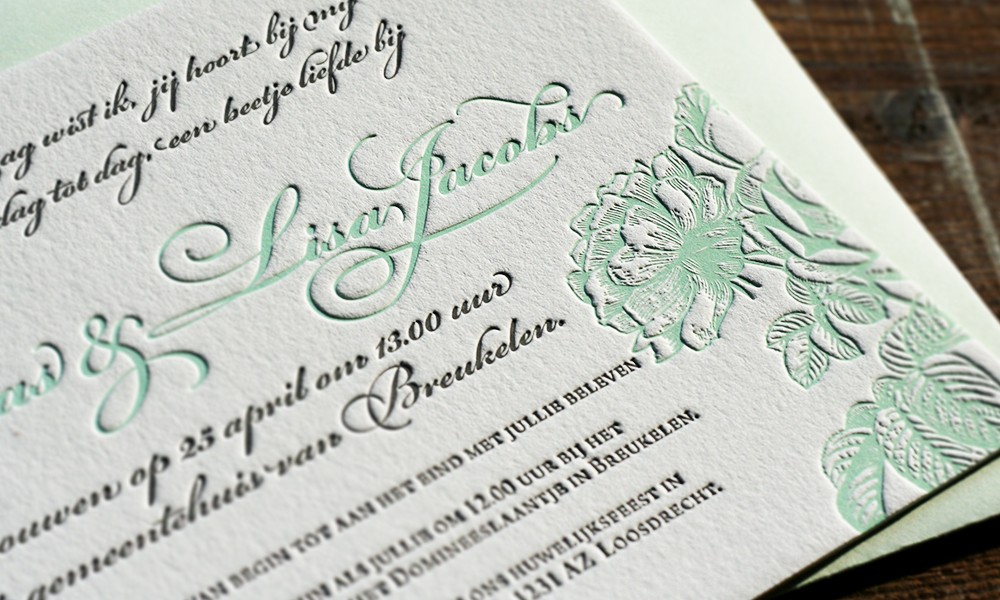 ag wist ik, jij hoort bij my
dag tot dag, een beetje liefde bij
as & Lisa Jacobs
ouwen op 25 april om 13.00 uur
gemeentehuis van Breukelen.
VAN BEGIN TOT AAN HET EIND MET JULLIE BELEVEN
ALS JULLIE OM 12.00 UUR BIJ HET
HET DOMINEESLAANTJE IN BREUKELEN.
ONS HUWELIJKSFEEST IN
1231 AZ LOOSDRECHT.